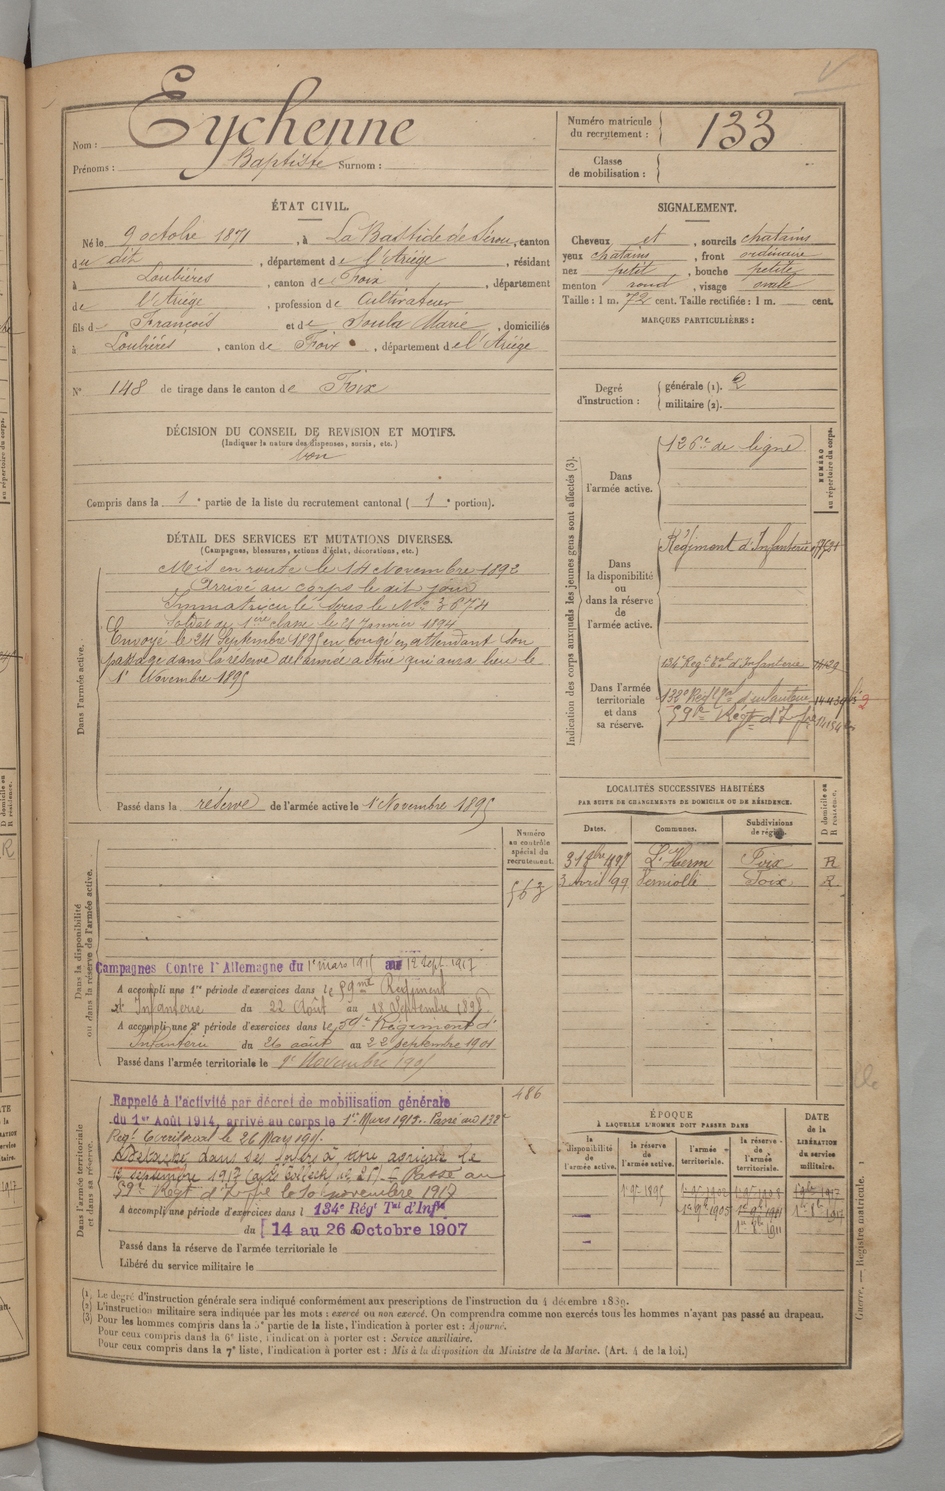 Nom : Eychenne
Prénoms : Baptiste Surnom :
Numéro matricule du recrutement : 133
Classe de mobilisation :
ÉTAT CIVIL.
Né le 9 octobre 1871, à La Bastide de Sérou, canton
du dit, département de l'Ariége, résidant
à Loubières, canton de Foix, département
de l'Ariége, profession de Cultivateur
fils de François et de Soula Marie, domiciliés
à Loubiéres, canton de Foix, département de l'Ariége
N° 148 de tirage dans le canton de Foix
DÉCISION DU CONSEIL DE REVISION ET MOTIFS.
(Indiquer la nature des dispenses, sursis, etc.)
bon
Compris dans la 1e partie de la liste du recrutement cantonal (1e portion).
SIGNALEMENT.
Cheveux et, sourcils chatains
yeux chatains, front ordinaire
nez petit, bouche petite
menton rond, visage ovale
Taille : 1 m. 72 cent. Taille rectifiée : 1 m. cent.
MARQUES PARTICULIÈRES :
Degré d'instruction : générale (1). 2
militaire (2).
DÉTAIL DES SERVICES ET MUTATIONS DIVERSES.
(Campagnes, blessures, actions d'éclat, décorations, etc.)
Dans l'armée active.
Mis en route le 14 Novembre 1892
Arrivé au corps le dit jour
Immatriculé sous le No 3674
Soldat de 1ère classe le 21 Janvier 1894
Envoyé le 24 Septembre 1895 en congé en attendant son
passage dans la réserve de l'armée active qui aura lieu le
1r Novembre 1895
Passé dans la réserve de l'armée active le 1r Novembre 1895
Indication des corps auxquels les jeunes gens sont affectés (3).
NUMÉRO au répertoire du corps.
Dans l'armée active.
126e de ligne
Dans la disponibilité ou dans la réserve de l'armée active.
Régiment d'Infanterie
Dans l'armée territoriale et dans sa réserve.
134e Regt Tal d'Infanterie
132e Regt d'infanterie
59e Régt d'Infrie
LOCALITÉS SUCCESSIVES HABITÉES
PAR SUITE DE CHANGEMENTS DE DOMICILE OU DE RÉSIDENCE.
Dates. Communes. Subdivisions de région. D domicile ou R résidence.
L'Herm Foix R
3 Avril 99 Verniolle Foix R
Dans la disponibilité ou dans la réserve de l'armée active.
Numéro au contrôle spécial du recrutement.
563
Campagnes Contre l'Allemagne du 1r mars 1915 au 12 Sept. 1917
A accompli une 1re période d'exercices dans le 59me Régiment
d'Infanterie du 22 Août au 18 Septembre 1898
A accompli une 2e période d'exercices dans le 59e Régiment d'
Infanterie du 26 août au 22 septembre 1901
Passé dans l'armée territoriale le 1r Novembre 1905
Dans l'armée territoriale et dans sa réserve.
486
Rappelé à l'activité par décret de mobilisation générale
du 1er Août 1914, arrivé au corps le 1er Mars 1915. Passé au 132e
Regt Territorial le 26 Mars 1915.
dans ses foyers
septembre 1917 Passé au
59e Regt d'Infrie le 10 novembre 1917
A accompli une période d'exercices dans l 134e Régt Tal d'Infie
du 14 au 26 Octobre 1907
Passé dans la réserve de l'armée territoriale le
Libéré du service militaire le
ÉPOQUE
À LAQUELLE L'HOMME DOIT PASSER DANS
la disponibilité de l'armée active. la réserve de l'armée active. l'armée territoriale. la réserve de l'armée territoriale.
DATE de la LIBÉRATION du service militaire.
1r 9e 1895
(1) Le degré d'instruction générale sera indiqué conformément aux prescriptions de l'instruction du 4 décembre 1889.
(2) L'instruction militaire sera indiquée par les mots : exercé ou non exercé. On comprendra comme non exercés tous les hommes n'ayant pas passé au drapeau.
(3) Pour les hommes compris dans la 5e partie de la liste, l'indication à porter est : Ajourné.
Pour ceux compris dans la 6e liste, l'indication à porter est : Service auxiliaire.
Pour ceux compris dans la 7e liste, l'indication à porter est : Mis à la disposition du Ministre de la Marine. (Art. 4 de la loi.)
Guerre. — Registre matricule. 1